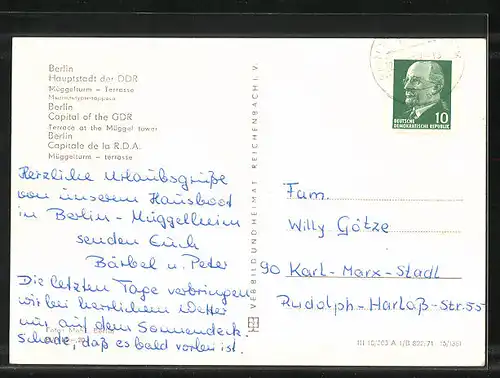 Berlin
Hauptstadt der DDR
Müggelturm – Terrasse
Berlin
Capital of the GDR
Terrace at the Müggel tower
Berlin
Capitale de la R.D.A.
Müggelturm – terrasse
Herzliche Urlaubsgrüße
von unserem Hausboot
in Berlin - Müggelheim
senden Euch
Bärbel u. Peter
Die letzten Tage verbringen
wir bei herrlichem Wetter
nur auf dem Sonnendeck.
Schade, daß es bald vorbei ist.
VERLAG BILD UND HEIMAT REICHENBACH I. V.
10
DEUTSCHE
DEMOKRATISCHE REPUBLIK
Fam.
Willy Götze
90 Karl-Marx-Stadt
Rudolph-Harlaß-Str. 55